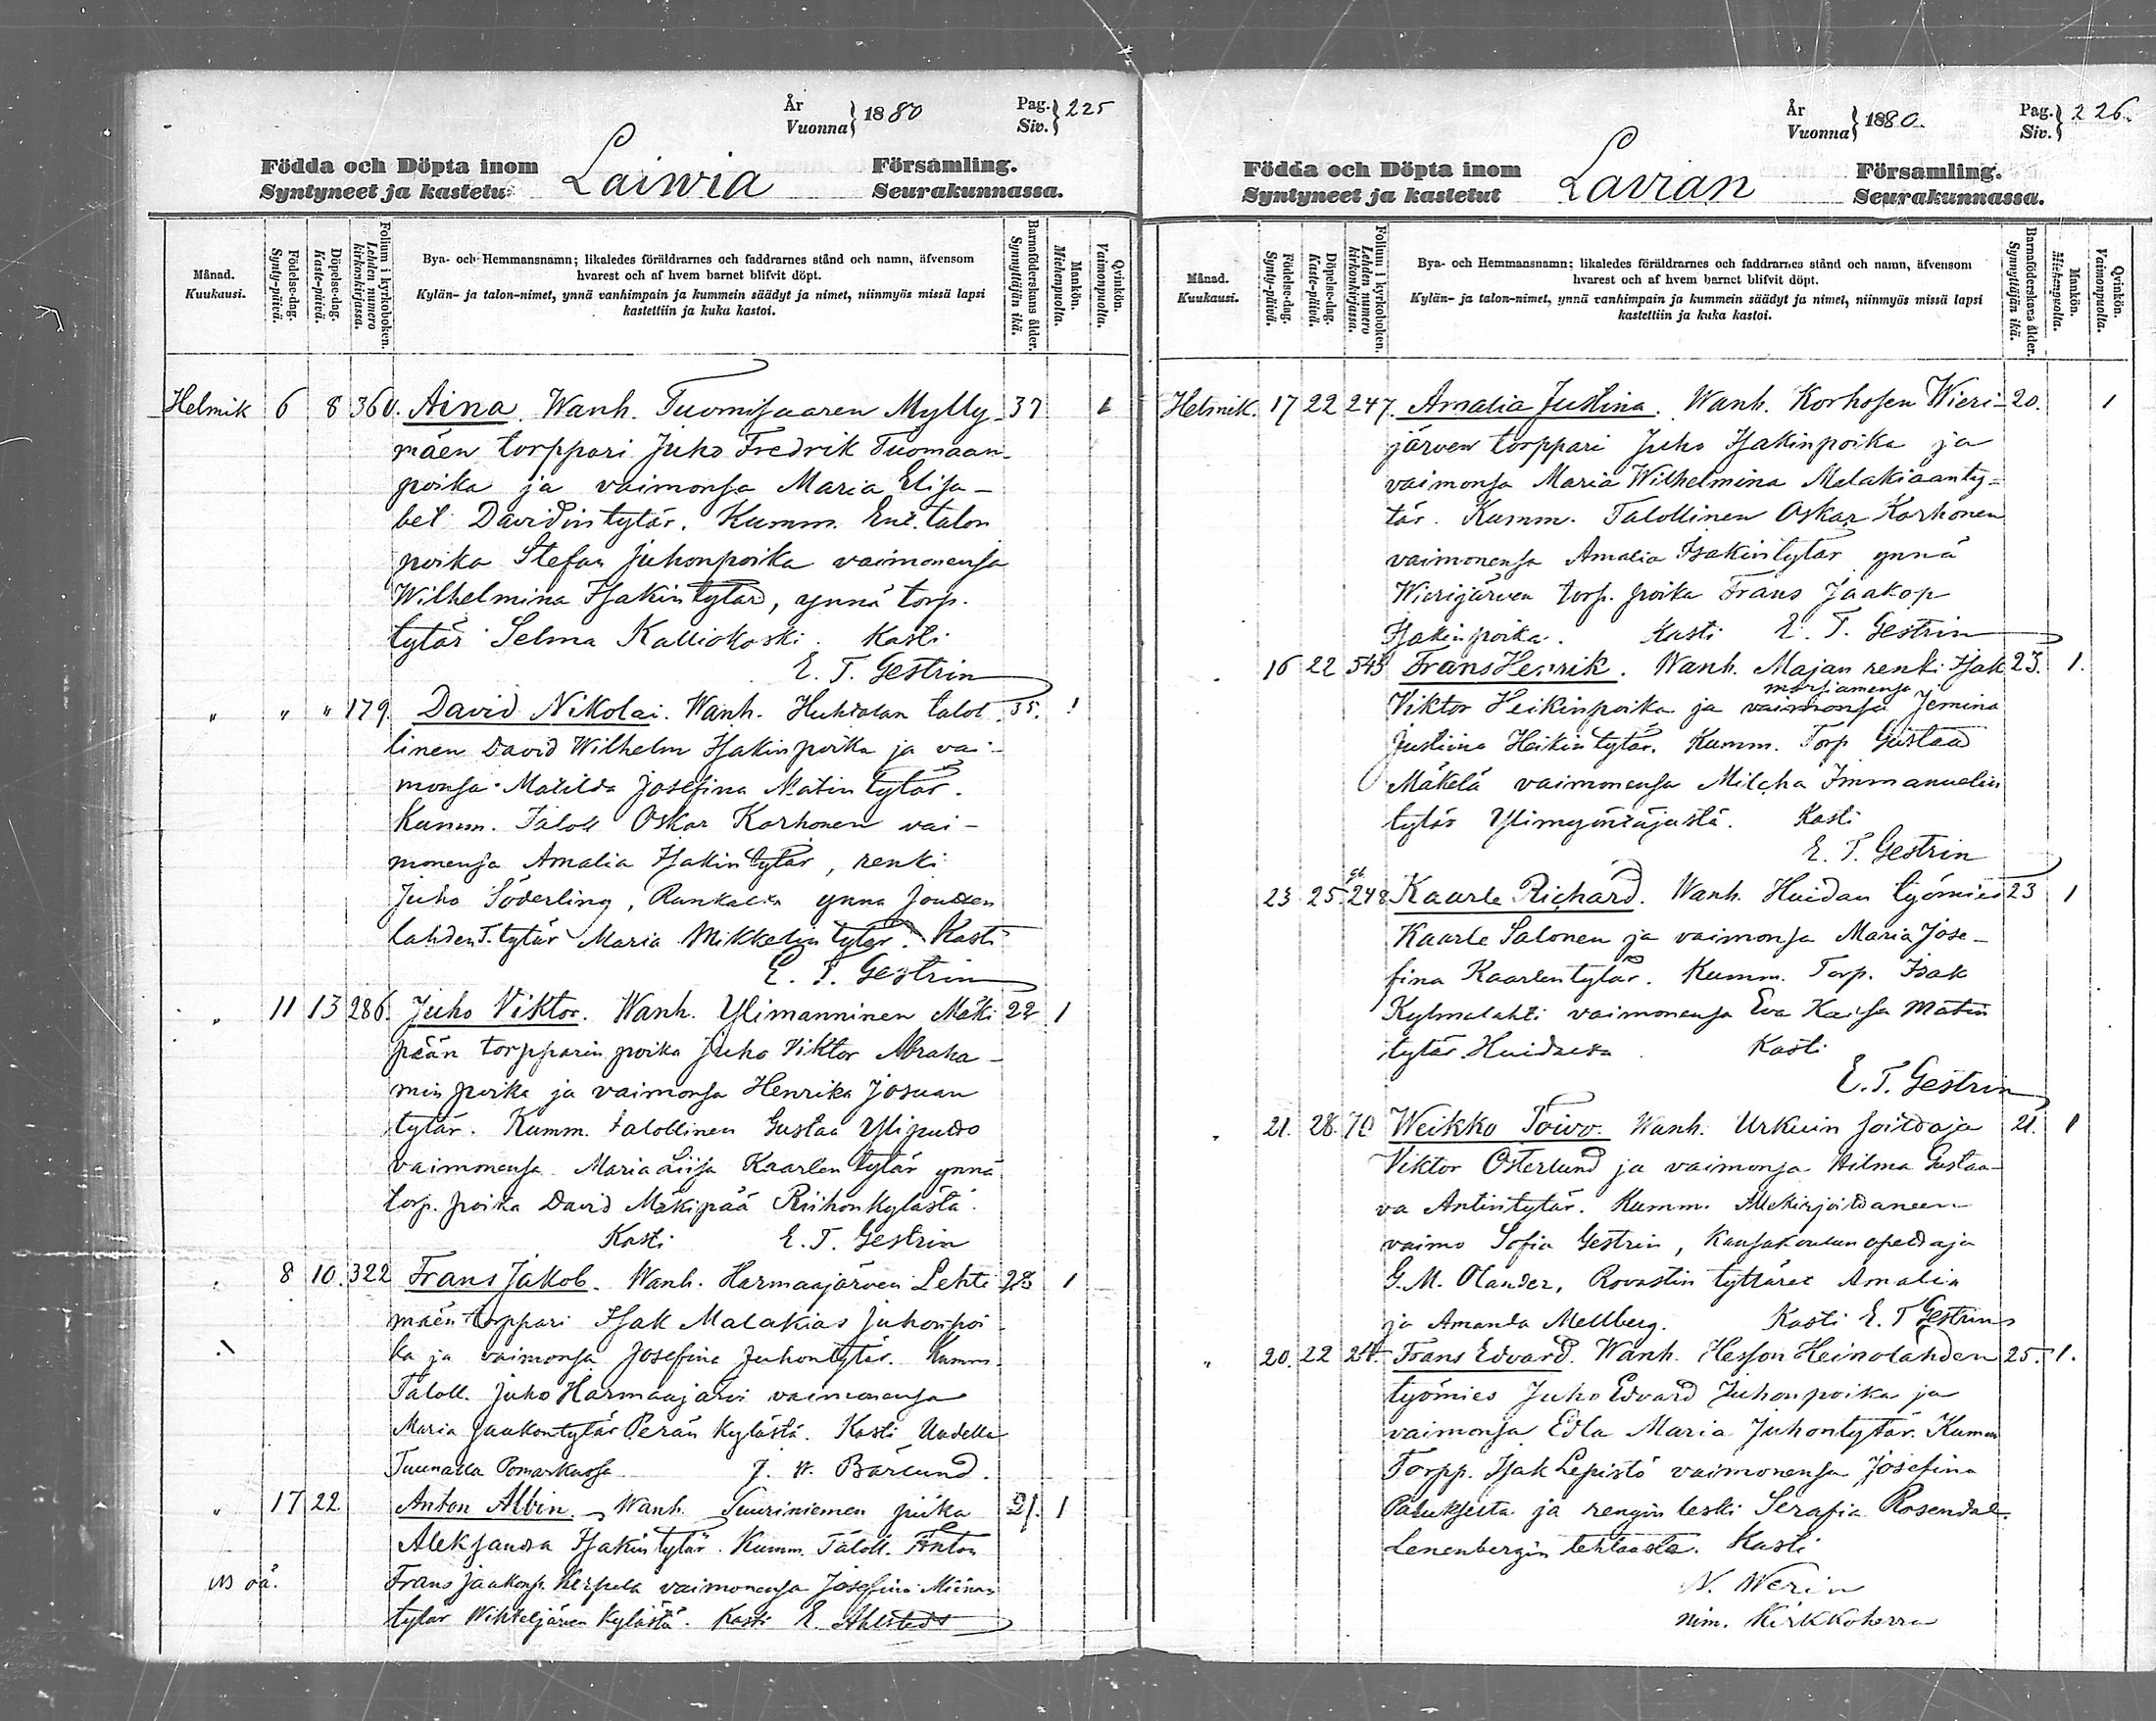 År
Vuonna} 1880
Pag.
Siv.} 225
Födda och Döpta inom Laiwia Församling.
Syntyneet ja kastetut Seurakunnassa.
Månad.
Kuukausi.
Födelse-dag.
Synty-päivä.
Döpelse-dag.
Kaste-päivä.
Folium i kyrkoboken.
Lehden numero
kirkonkirjassa.
Bya- och Hemmansnamn; likaledes föräldrarnes och faddrarnes stånd och namn, äfvensom
hvarest och af hvem barnet blifvit döpt.
Kylän- ja talon-nimet, ynnä vanhimpain ja kummein säädyt ja nimet, niinmyös missä lapsi
kastettiin ja kuka kastoi.
Barnaföderskans ålder.
Synnyttäjän ikä.
Mankön.
Miehenpuolta.
Qvinkön.
Vaimonpuolta.
Helmik 6 8 360. Aina. Wanh. Tuomisaaren Mylly- 37 1
mäen torppari Juho Fredrik Tuomaan-
poika ja vaimonsa Maria Elisa-
bet Davidintytär. Kumm. Ent. talon
poika Stefan Juhonpoika vaimonensa
Wilhelmina Isakintytär, ynnä torp.
tytär Selma Kalliokoski. Kasti
E. T. Gestrin
" " " 179. David Nikolai. Wanh. Huhtalan talol 35. 1
linen David Wilhelm Isakinpoika ja vai-
monsa Matilda Josefina Matintytär.
Kumm. Taloll Oskar Korhonen vai-
monensa Amalia Isakintytär, renki
Juho Söderling, ynnä
lahden T. tytär Maria Mikkelintytär. Kasti
E. T. Gestrin
" 11 13 286. Juho Viktor. Wanh. Ylimanninen Mäki 22 1
pään torpparin poika Juho Viktor Abraha-
min poika ja vaimonsa Henrika Josuan
tytär. Kumm. talollinen Gustaa
vaimonensa Maria Liisa Kaarlen tytär ynnä
torp. poika David Mäkipää Riihonkylästä.
Kasti E. T. Gestrin
" 8 10. 322 Frans Jakob. Wanh. Harmaajärven Lehti 28 1
mäen torppari Isak Malakias Juhonpoi-
ka ja vaimonsa Josefina Juhontytär. Kumm.
Taloll. Juho Harmaajärvi vaimonensa
Maria Jaakontytär Perän kylästä. Kasti Uudella
Tuunalla Pomarkussa J. W. Bärlund.
" 17 22 Anton Albin. Wanh. Suuriniemen piika 21. 1
Aleksandra Isakintytär. Kumm. Taloll. Anton
Frans Jaakonp. Kerpela vaimonensa Josefina
tytär Wihteljärven kylästä. Kasti E. Ahlstedt
År
Vuonna} 1880.
Pag.
Siv.} 226.
Födda och Döpta inom Lavian Församling.
Syntyneet ja kastetut Seurakunnassa.
Månad.
Kuukausi.
Födelse-dag.
Synty-päivä.
Döpelse-dag.
Kaste-päivä.
Folium i kyrkoboken.
Lehden numero
kirkonkirjassa.
Bya- och Hemmansnamn; likaledes föräldrarnes och faddrarnes stånd och namn, äfvensom
hvarest och af hvem barnet blifvit döpt.
Kylän- ja talon-nimet, ynnä vanhimpain ja kummein säädyt ja nimet, niinmyös missä lapsi
kastettiin ja kuka kastoi.
Barnaföderskans ålder.
Synnyttäjän ikä.
Mankön.
Miehenpuolta.
Qvinkön.
Vaimonpuolta.
Helmik. 17 22 247. Amalia Justina. Wanh. Korhosen Wieri- 20. 1
järven torppari Juho Isakinpoika ja
vaimonsa Maria Wilhelmina Malakiaanty-
tär. Kumm. Talollinen Oskar Korhonen
vaimonensa Amalia Isakintytär ynnä
Wierijärven torp. poika Frans Jaakop
Isakinpoika. Kasti E. T. Gestrin
16 22 545 Frans Henrik. Wanh. Majan renki Isak 23. 1.
morsiamensa
Viktor Heikinpoika ja vaimonsa Jemina
Justiina Heikintytär. Kumm. Torp Gustaa
Mäkelä vaimonensa Milcha Immanuelin
tytär. Kasti
E. T. Gestrin
23 25. 248 Kaarle Richard. Wanh. Huidan työmies 23 1
Kaarle Salonen ja vaimonsa Maria Jose-
fina Kaarlentytär. Kumm. Torp. Isak
Kylmälahti vaimonensa Eva Kaisa Matin
tytär Huidasta. Kasti
E. T. Gestrin
" 21. 28. 70 Weikko Toivo. Wanh. Urkuin soittaja 21. 1
Viktor Österlund ja vaimonsa Hilma Gustaa-
va Antintytär. Kumm. Allekirjoittaneen
vaimo Sofia Gestrin, Kansakoulun opettaja
G. M. Olander, Rovastin tyttäret Amalia
ja Amanda Mellberg. Kasti E. T Gestrin
" 20. 22 24. Frans Edvard. Wanh. Hesson Heinolahden 25. 1.
työmies Juho Edvard Juhonpoika ja
vaimonsa Edla Maria Juhontytär. Kumm
Torpp. Isak Lepistö vaimonensa Josefina
ja rengin leski Serafia Rosendal
Lenenbergin tehtaasta. Kasti
N. Werin
nim. Kirkkoherra